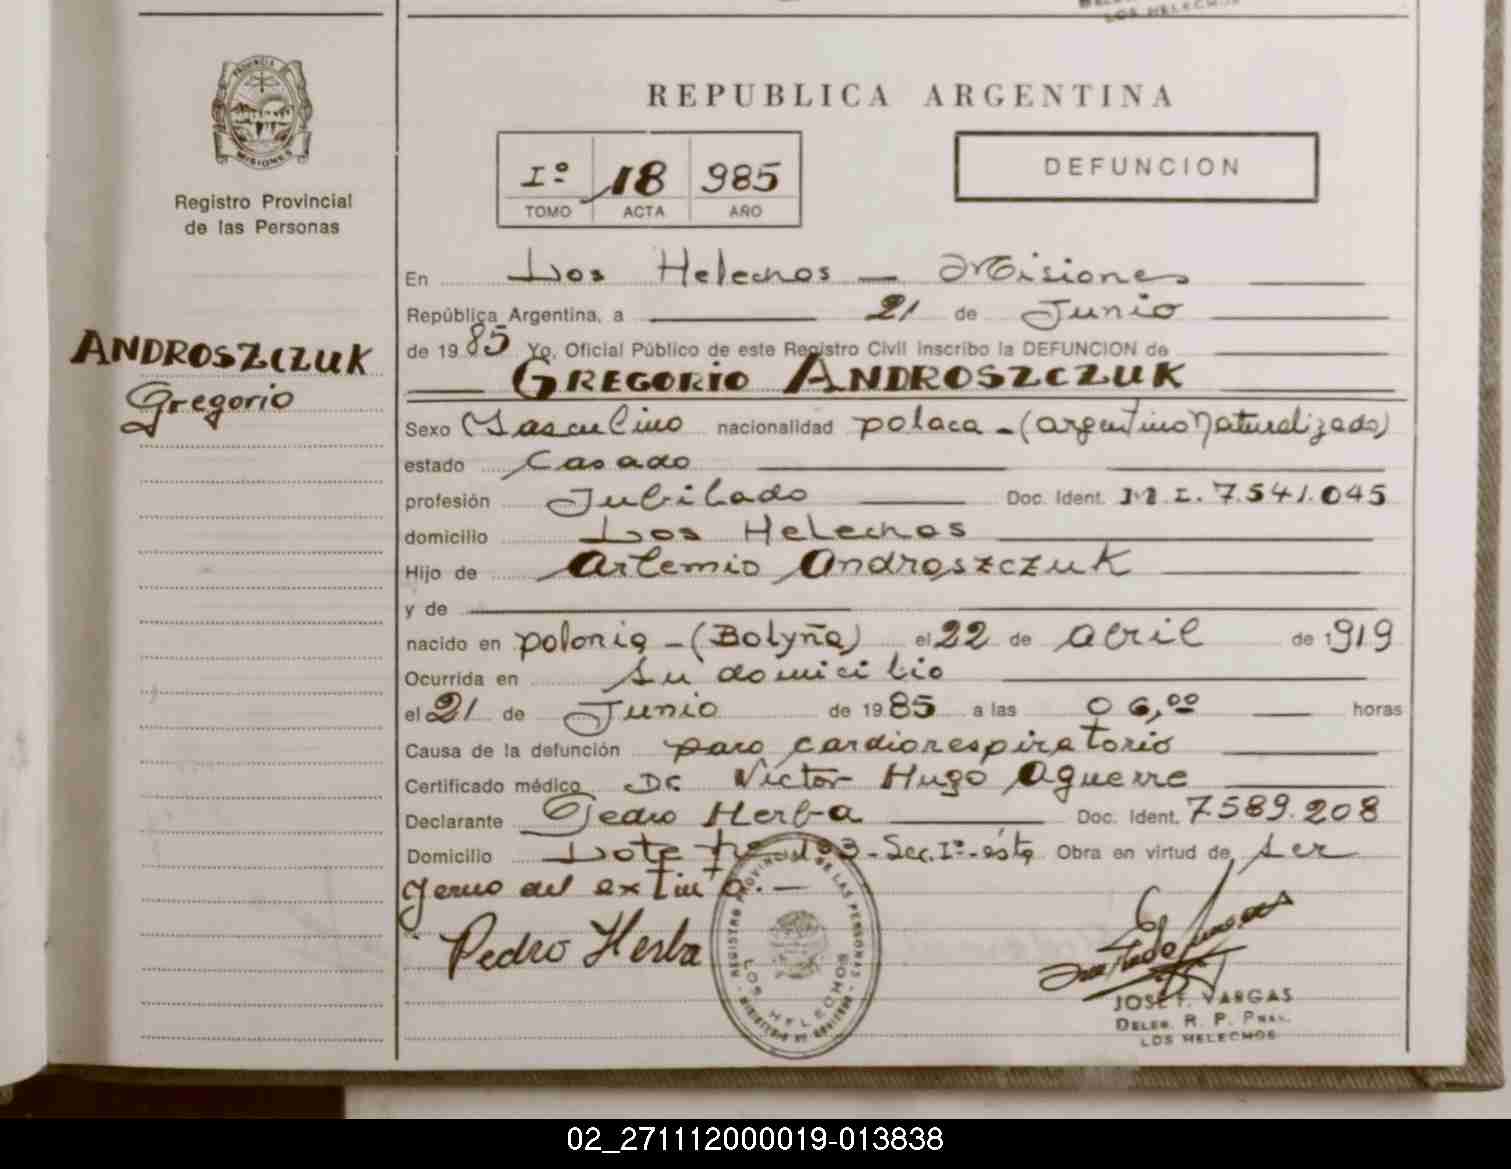 LOS HELECHOS
PROVINCIA
MISIONES
Registro Provincial
de las Personas
ANDROSZCZUK
Gregorio
REPUBLICA ARGENTINA
Iº 18 985
TOMO ACTA AÑO
DEFUNCION
En Los Helechos - Misiones
República Argentina, a 21 de Junio
de 1985 Yo, Oficial Público de este Registro Civil inscribo la DEFUNCION de
GREGORIO ANDROSZCZUK
Sexo Masculino nacionalidad polaca - (argentino Naturalizado)
estado Casado
profesión Jubilado Doc. Ident. M.I. 7.541.045
domicilio Los Helechos
Hijo de Artemio Androszczuk
y de
nacido en polonia - (Bolyña) el 22 de abril de 1919
Ocurrida en su domicilio
el 21 de Junio de 1985 a las 06,00 horas
Causa de la defunción paro cardiorespiratorio
Certificado médico Dr Victor Hugo Aguerre
Declarante Pedro Herba Doc. Ident. 7.589.208
Domicilio Lote 103 - Sec. Iª - ésta Obra en virtud de ser
yerno del extinto. -
Pedro Herba
REGISTRO PROVINCIAL DE LAS PERSONAS
LOS HELECHOS
MINISTERIO DE GOBIERNO
JOSE F. VARGAS
DELEG. R. P. PNAS.
LOS HELECHOS
02_271112000019-013838